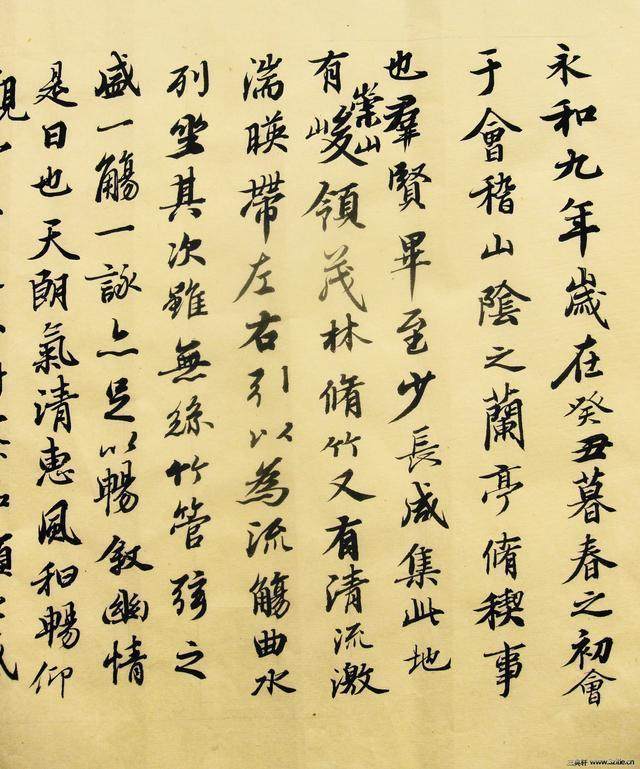 永和九年歲在癸丑暮春之初會
于會稽山陰之蘭亭脩稧事
也羣賢畢至少長咸集此地
有崇山峻領茂林脩竹又有清流激
湍暎帶左右引以為流觴曲水
列坐其次雖無絲竹管弦之
盛一觴一詠亦足以暢敘幽情
是日也天朗氣清惠風和暢仰
觀
三奂轩 www.52tie.cn